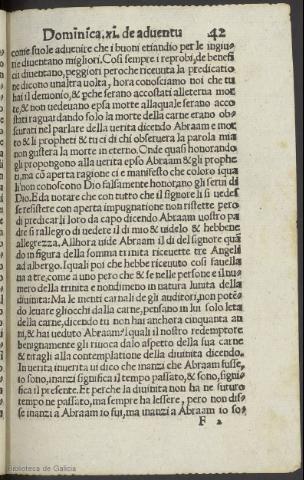 Dominica .xi. de aduentu 42
come suole aduenire che i buoni etiandio per le ingiu
rie diuentano migliori. Cosi sempre i reprobi, de benefi
cii diuentano, peggiori perche riceuuta la predicatio
ne dicono unaltra uolta, hora conosciamo noi che tu
hai il demonio, & perche serano accostati alleterna mor
te & non uedeuano epsa morte allaquale serano acco
stati raguardando solo la morte della carne erano ob-
scurati nel parlare della uerita dicendo Abraam e mor
to & li propheti & tu ci di chi obseruera la parola mia
non gustera la morte in eterno. Onde quasi honorando
gli propongono alla uerita epso Abraam & gli prophe
ti, ma co aperta ragione ci e manifesto che coloro iqua
li non conoscono Dio falsamente honorano gli serui di
Dio. E da notare che con tutto che il signore li si uedes
se resistere con aperta impugnatione non restette pero
di predicar li loro da capo dicendo Abraam uostro pa
dre si rallegro di uedere il di mio & uidelo & hebbene
allegrezza. Allhora uide Abraam il di del signore quā
do in figura della somma trinita riceuette tre Angeli
ad albergo. Iquali poi che hebbe riceuuto cosi fauella
ua a tre, come a uno pero che & se nelle persone e il nu-
mero della trinita e nondimeno in natura lunita della
diuinita: Ma le menti carnali de gli auditori, non potē-
do leuare gliocchi dalla carne, pensano in lui solo leta
della carne, dicendo tu non hai anchora cinquanta an
ni, & hai ueduto Abraam? Iquali il nostro redemptore
benignamente gli riuoca dalo aspetto della sua carne
& tiragli alla contemplatione della diuinita dicendo.
In uerita inuerita ui dico che inanzi che Abraam fusse,
io sono, inanzi significa il tempo passato, & sono, signi-
fica il presente. Et perche la diuinita non ha ne futuro
tempo ne passato, ma sempre ha lessere, pero non dis-
se inanzi a Abraam io fui, ma inanzi a Abraam io so-
F 2
Biblioteca de Galicia